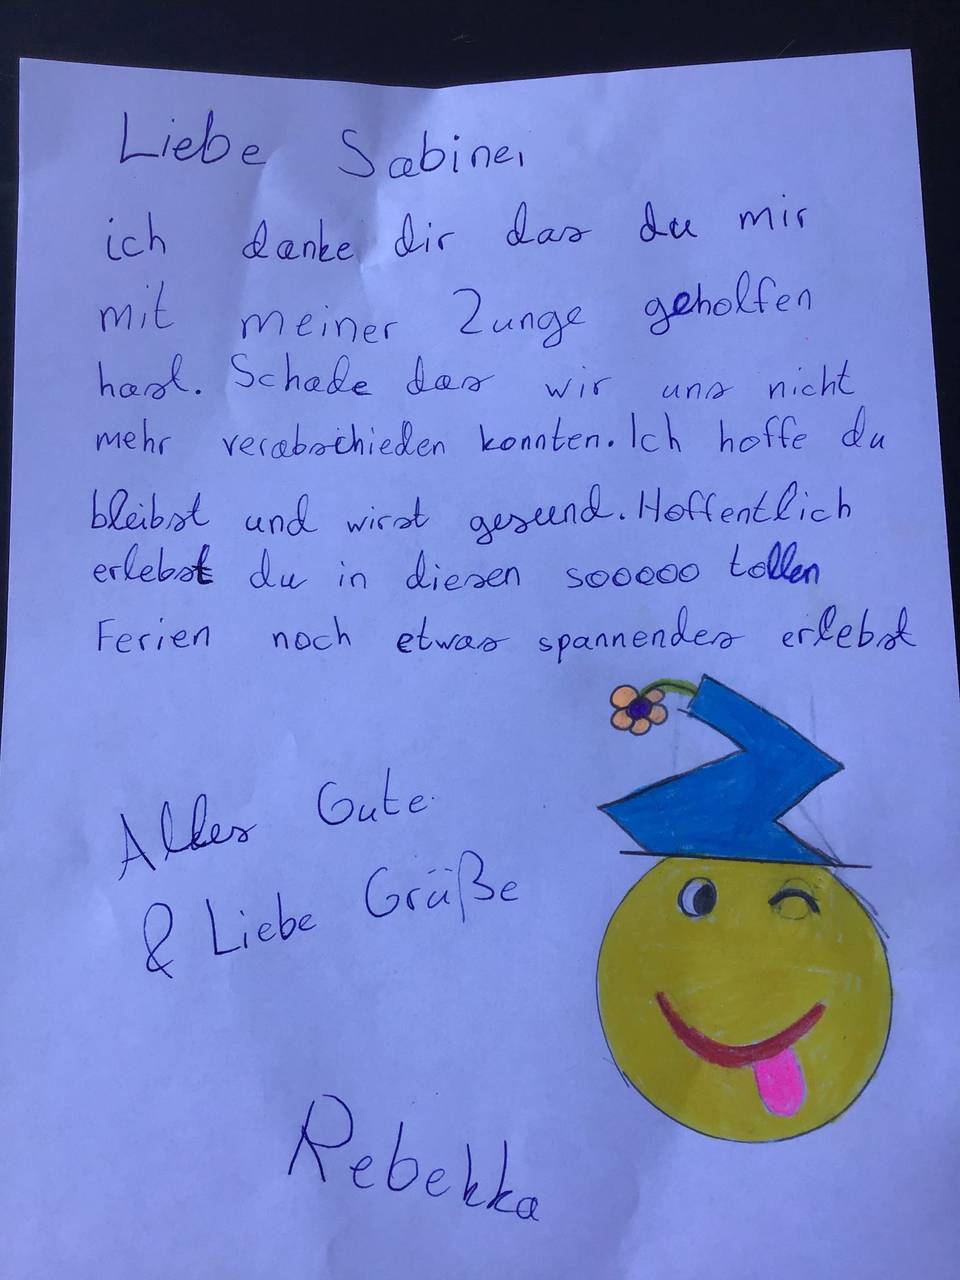 Liebe Sabine,
ich danke dir das du mir
mit meiner Zunge geholfen
hast. Schade das wir uns nicht
mehr verabschieden konnten. Ich hoffe du
bleibst und wirst gesund. Hoffentlich
erlebst du in diesen sooooo tollen
Ferien noch etwas spannendes erlebst
Alles Gute
& Liebe Grüße
Rebekka